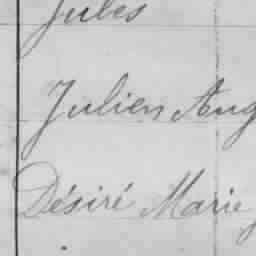 Jules
Julien Aug
Désiré Marie